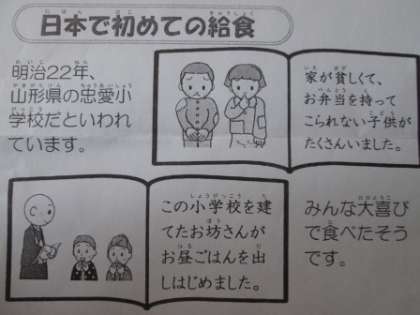 日本で初めての給食
明治22年、
山形県の忠愛小
学校だといわれ
ています。
家が貧しくて、
お弁当を持って
こられない子供が
たくさんいました。
この小学校を建
てたお坊さんが
お昼ごはんを出
しはじめました。
みんな大喜び
で食べたそう
です。